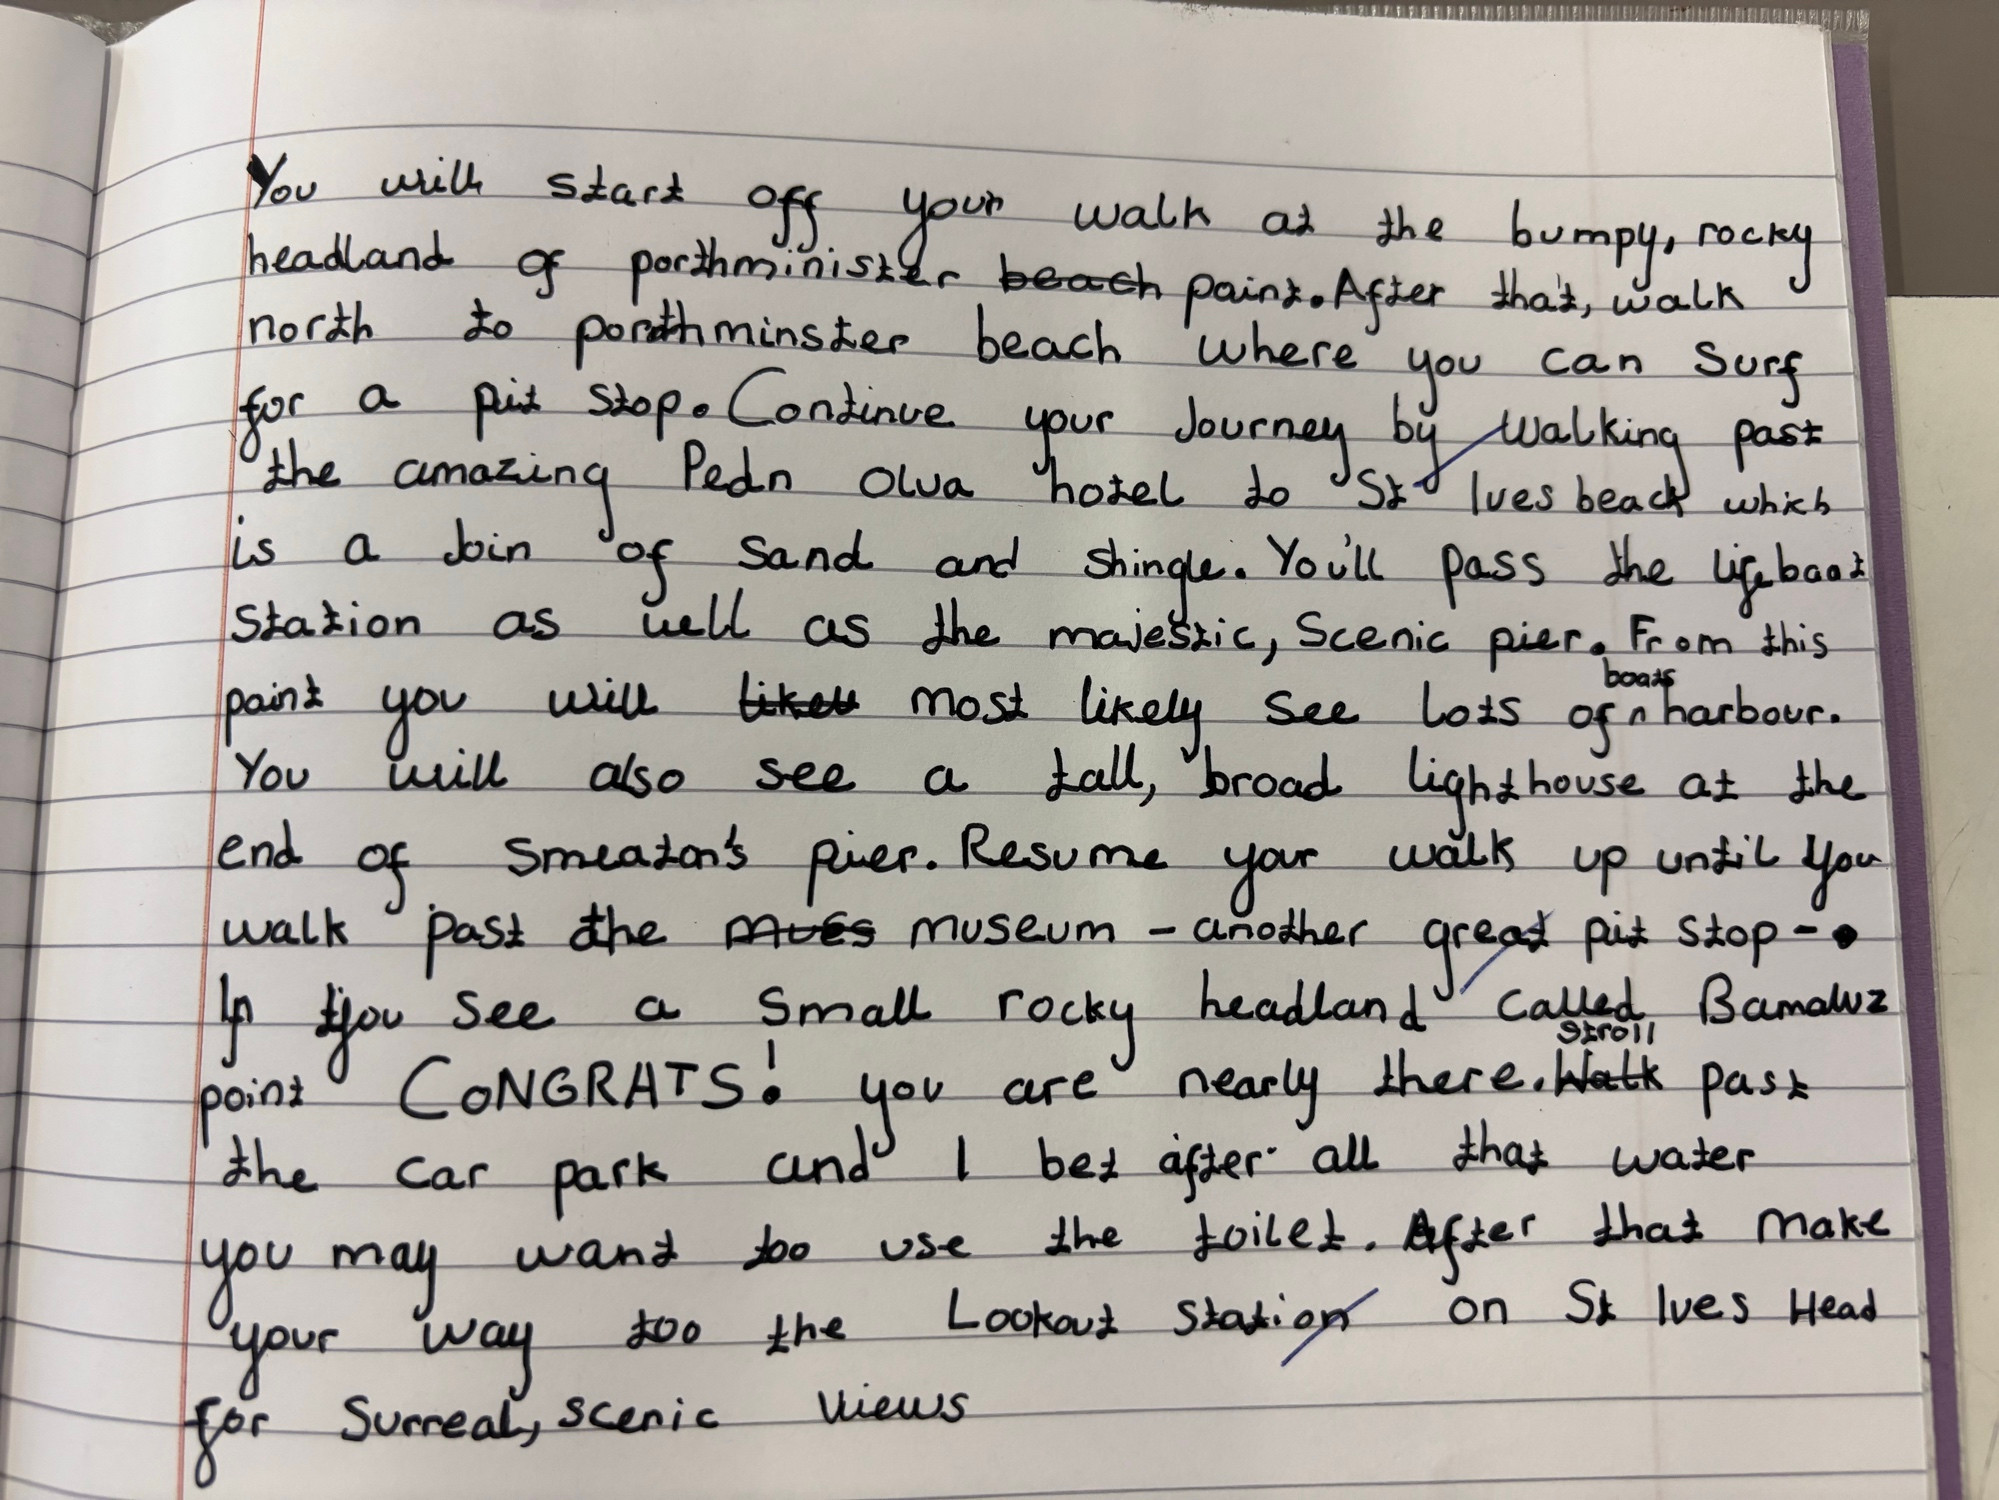 You will start off your walk at the bumpy, rocky
headland of porthminister beach point. After that, walk
north to porthminster beach where you can surf
for a pit stop. Continue your Journey by walking past
the amazing Pedn Olva hotel to St Ives beach which
is a Join of Sand and shingle. You'll pass the lifeboat
Station as well as the majestic, Scenic pier. From this
point you will likely most likely see lots of boats harbour.
You will also see a tall, broad lighthouse at the
end of Smeaton's pier. Resume your walk up until you
walk past the mues museum - another great pit stop -.
If you see a small rocky headland called Bamaluz
point CONGRATS! you are nearly there. Walk stroll past
the car park and I bet after all that water
you may want too use the toilet. After that make
your way too the Lookout station on St Ives Head
for Surreal, scenic views